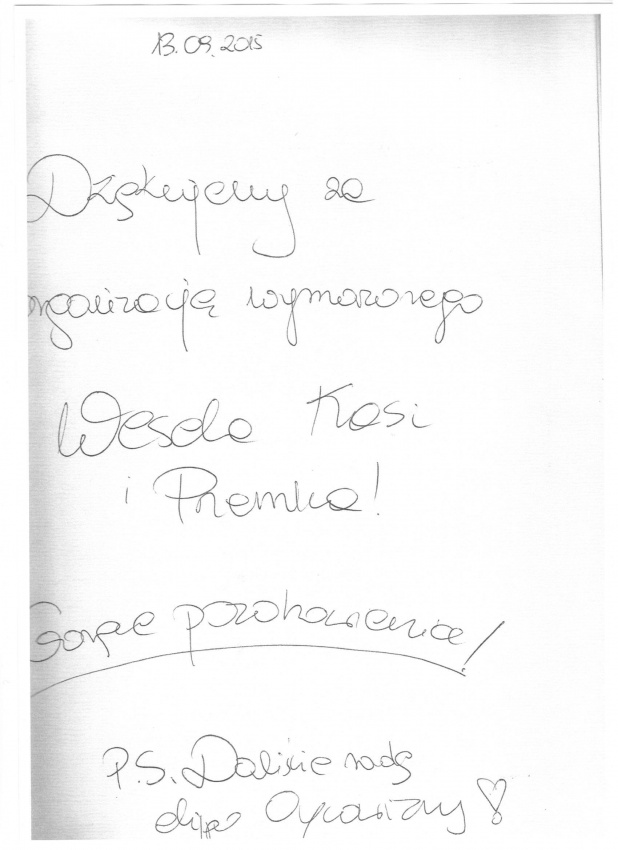 13.09.2015
Dziękujemy za
organizację wymarzonego
Wesela Kasi
i Przemka!
Gorące pozdrowienia!
P.S. Daliście radę